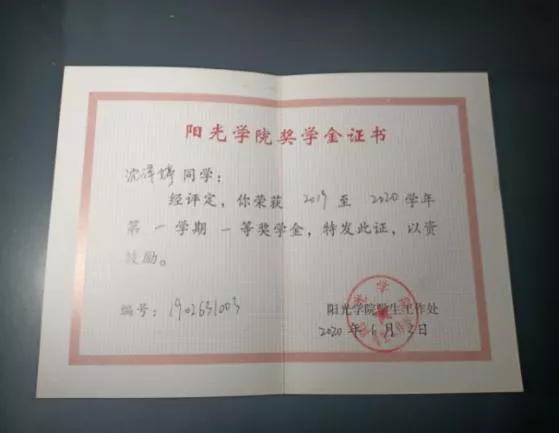 阳光学院奖学金证书
沈泽婷 同学:
经评定,你荣获 2019 至 2020 学年
第 一 学期 一 等奖学金,特发此证,以资
鼓励。
编号: 1902631003
阳光学院学生工作处
2020 年 6 月 2 日